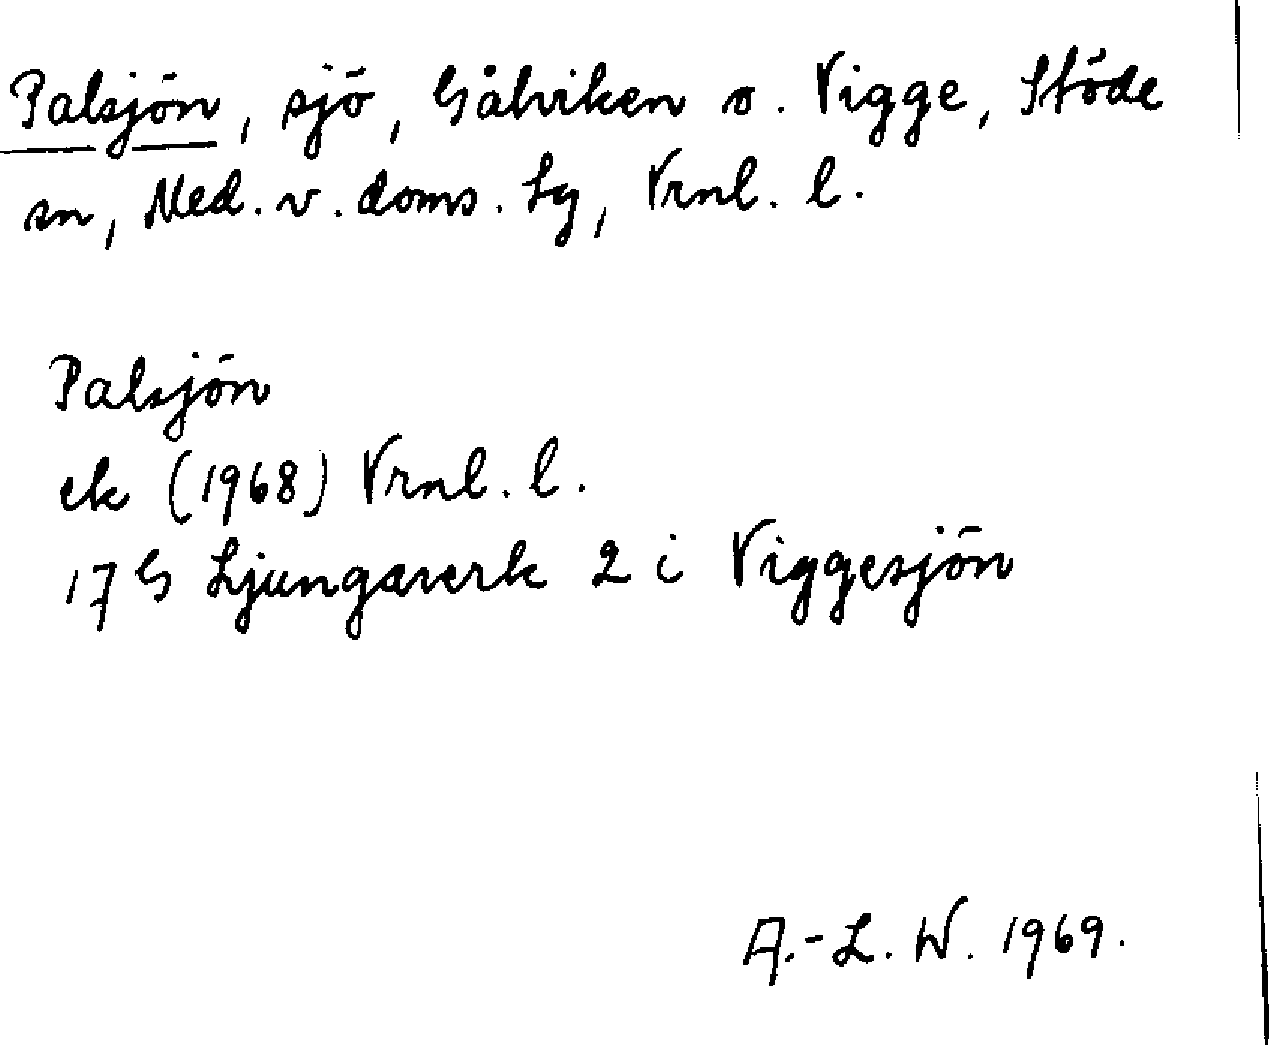 Palsjön, sjö, Gålviken o. Vigge, Stöde
sn, Med. v. doms. lg, Vrnl. l.
Palsjön
ek (1968) Vrnl. l.
17 G Ljungaverk 2 i Viggesjön
A.-L. W. 1969.